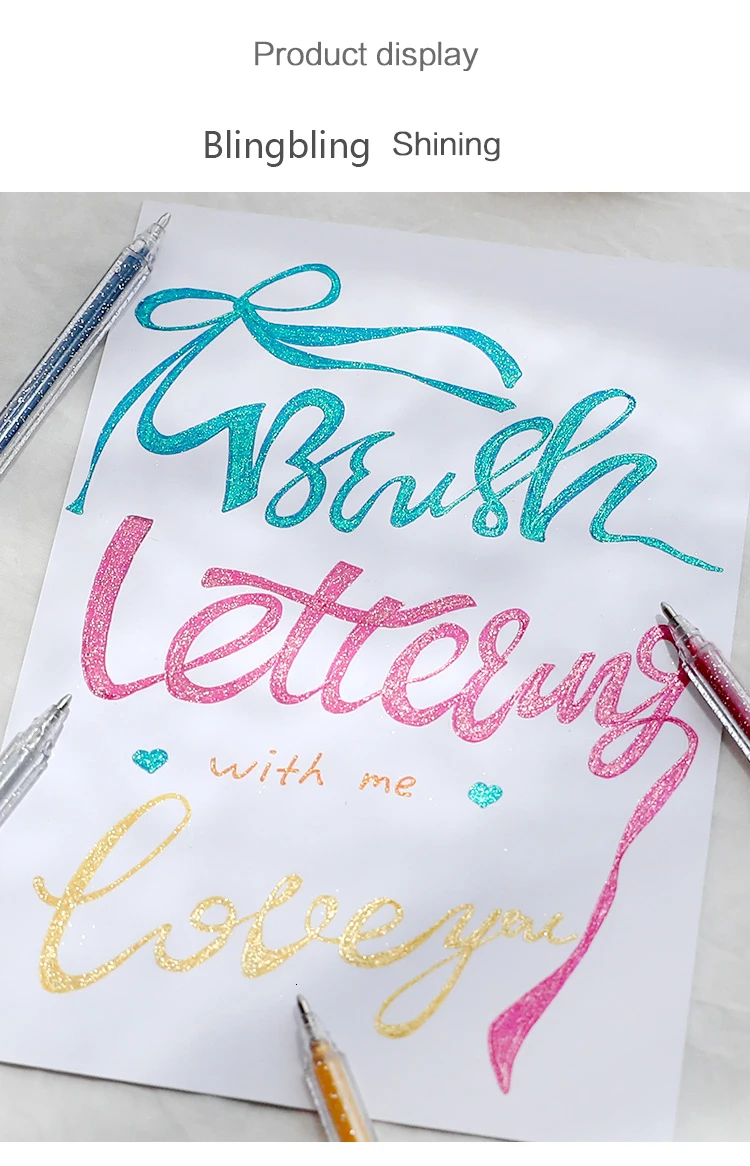 Product display
Blingbling Shining
Brush
Lettering
with me
love you